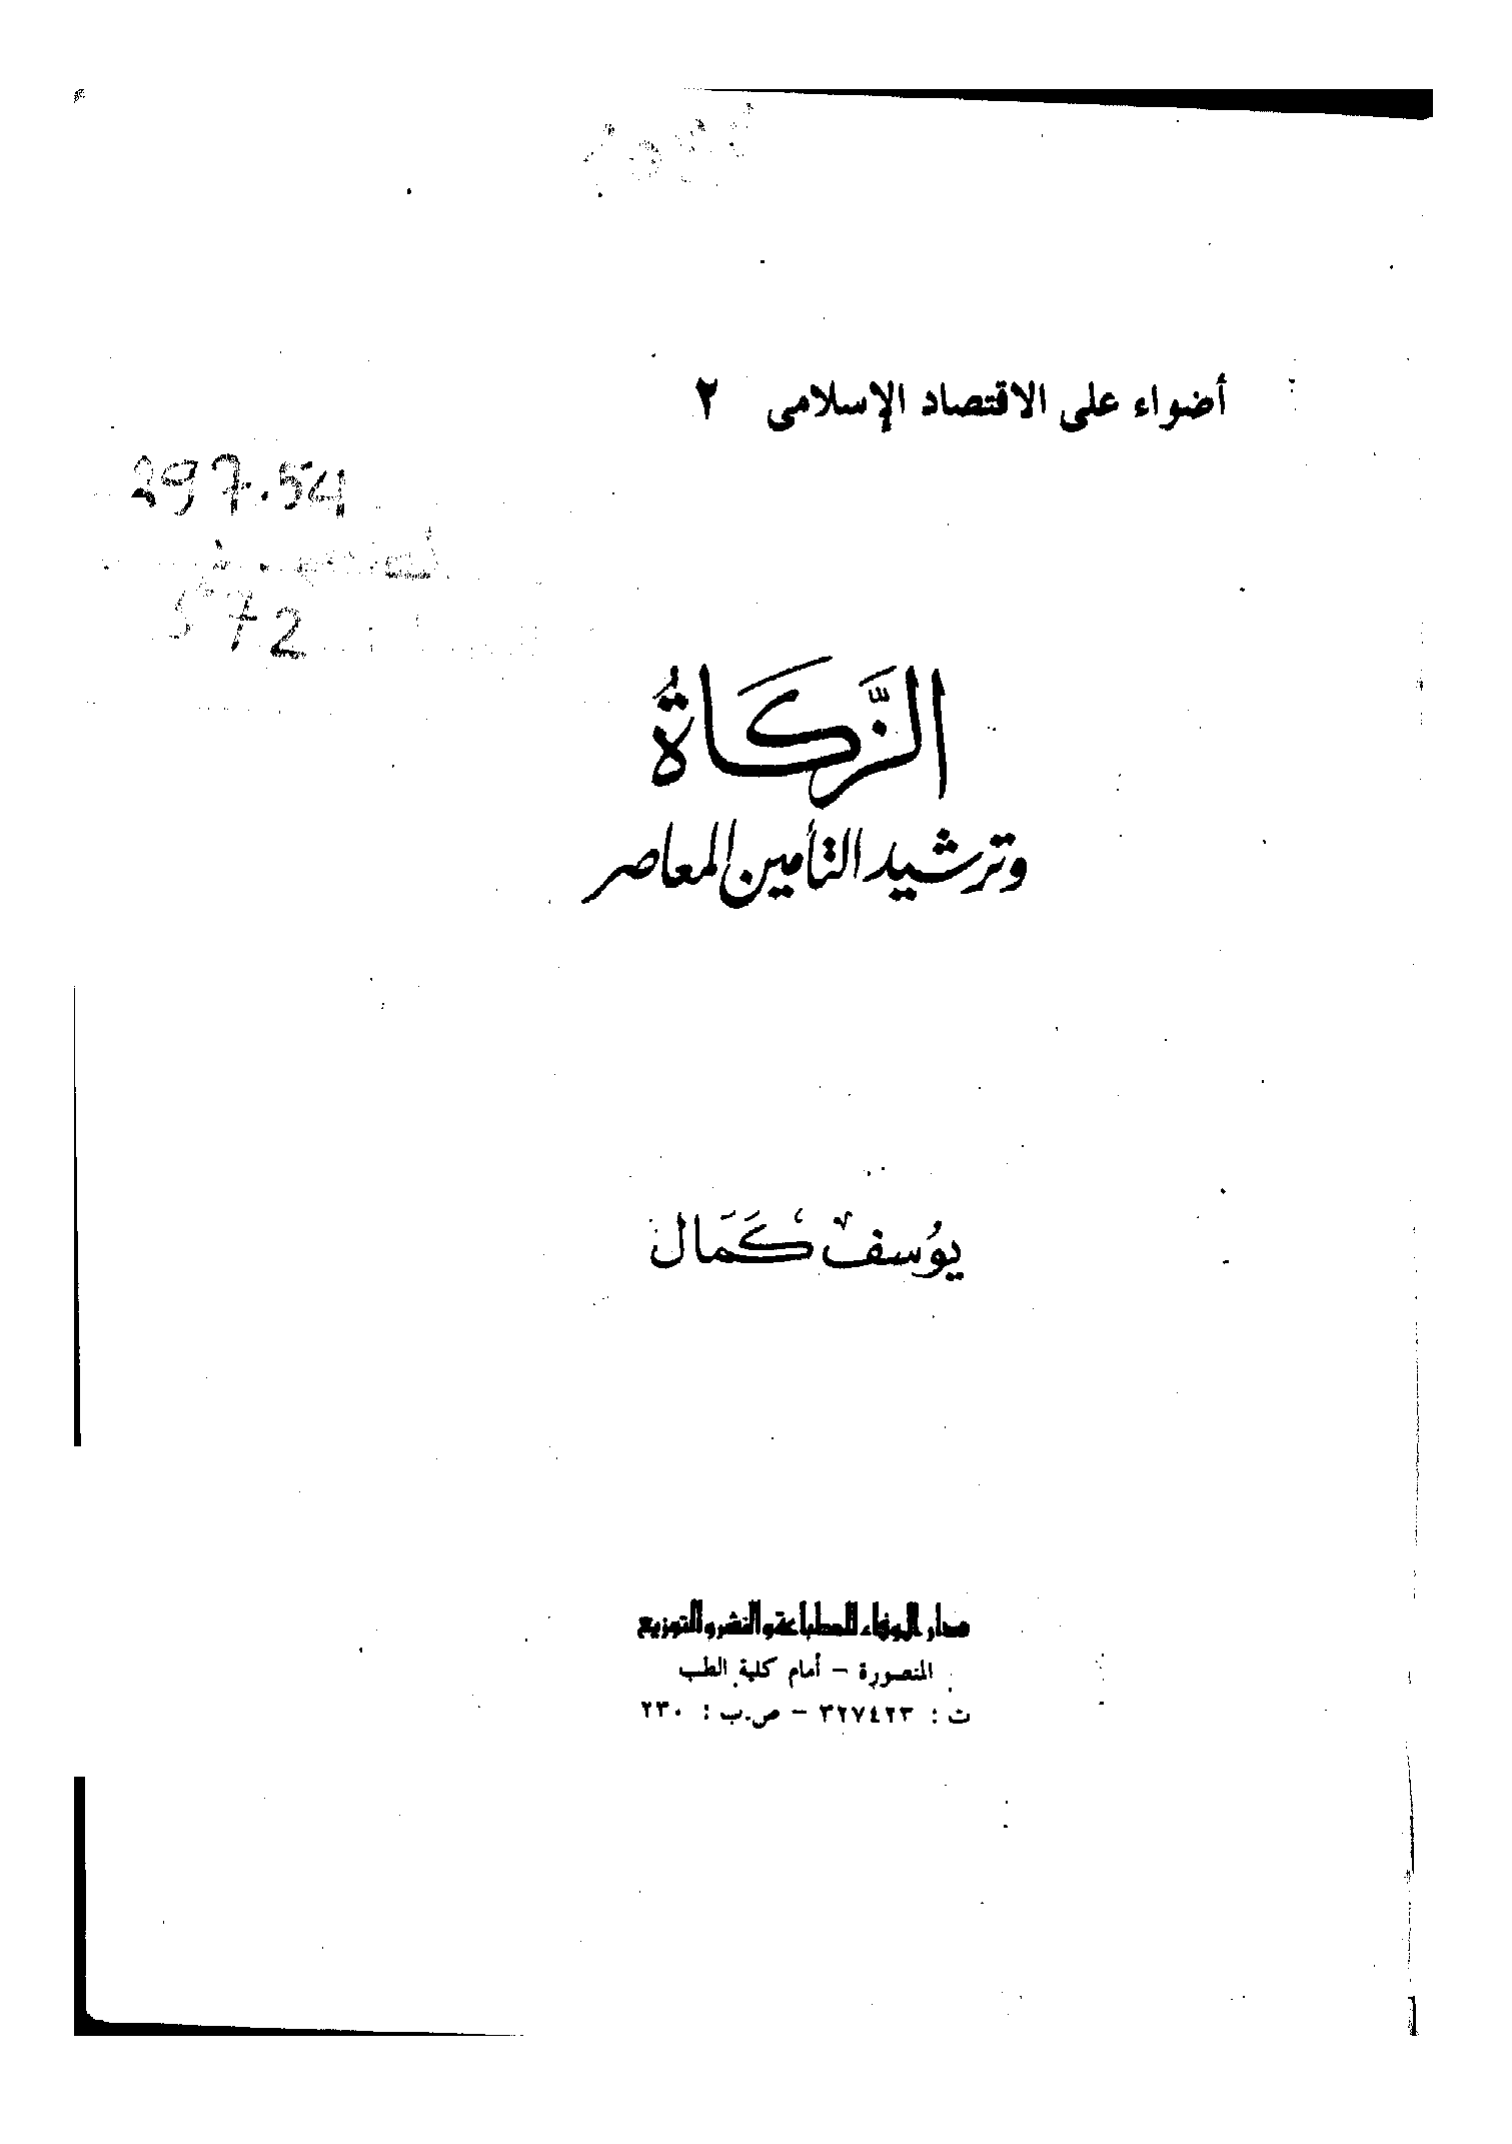 أضواء على الاقتصاد الإسلامى ٢
297.54
572
الزَّكَاةُ
وترشيد التأمين المعاصر
يوُسف كَمَال
دار الوفاء للطباعة والنشر والتوزيع
المنصورة – أمام كلية الطب
ت : ٣٢٧٤٢٣ – ص.ب : ٢٣٠